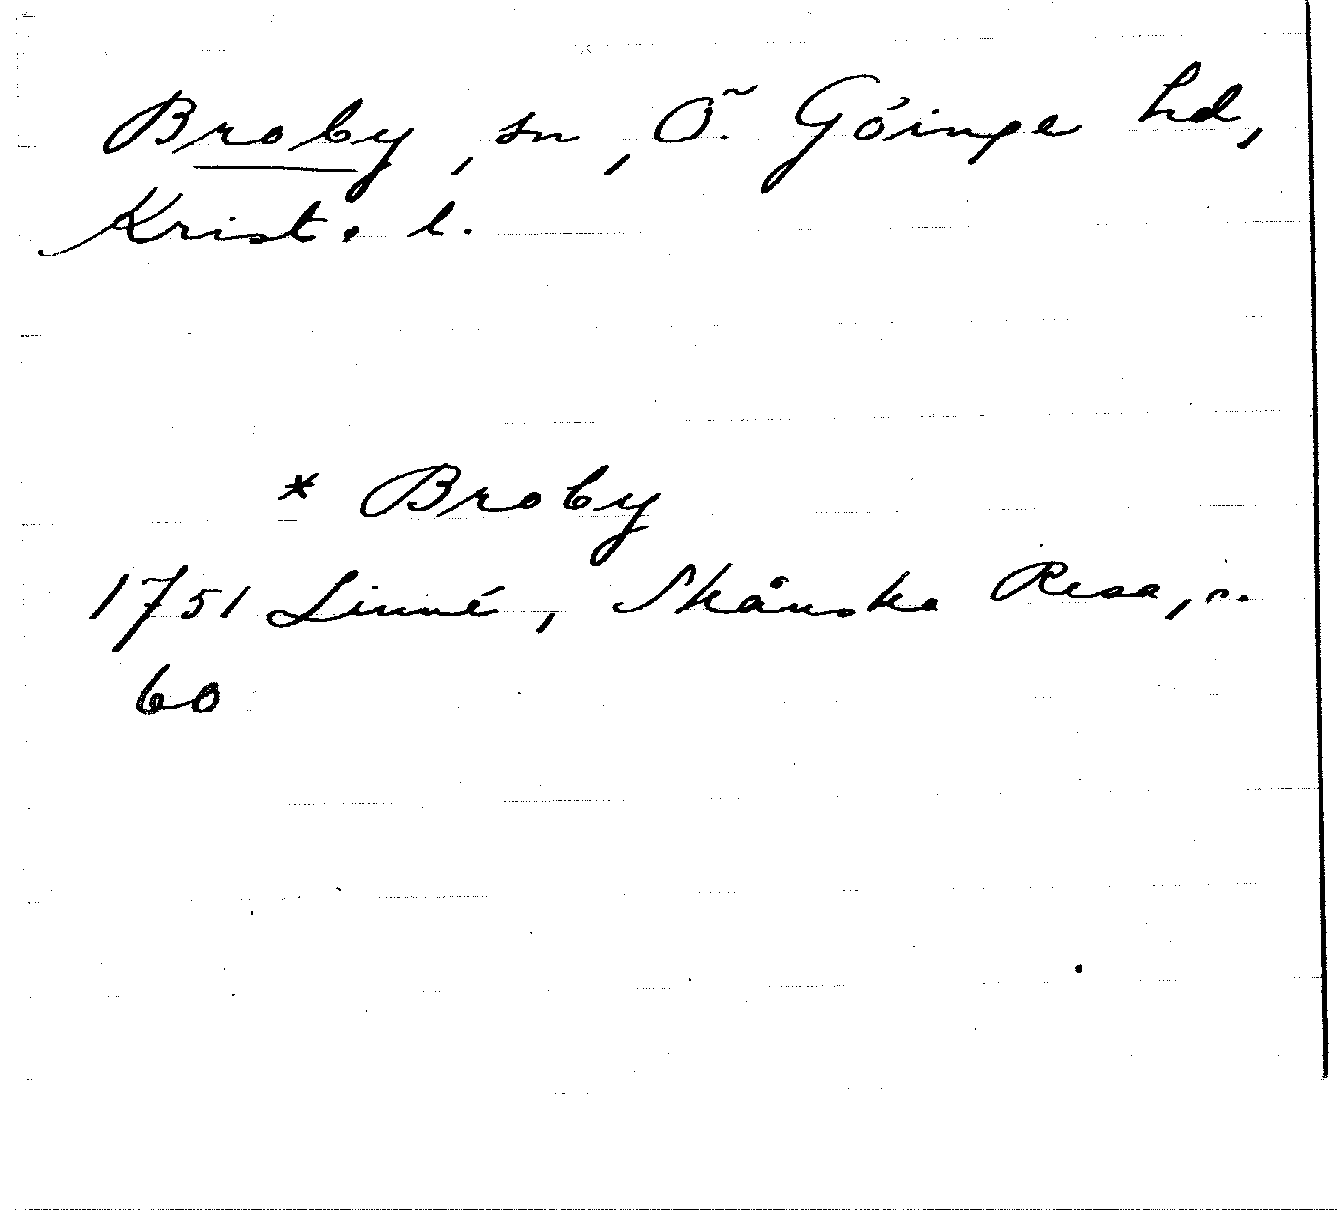 Broby, sn, Ö. Göinge hd,
Krist. l.
* Broby
1751 Linné, Skånska Resa, s.
60